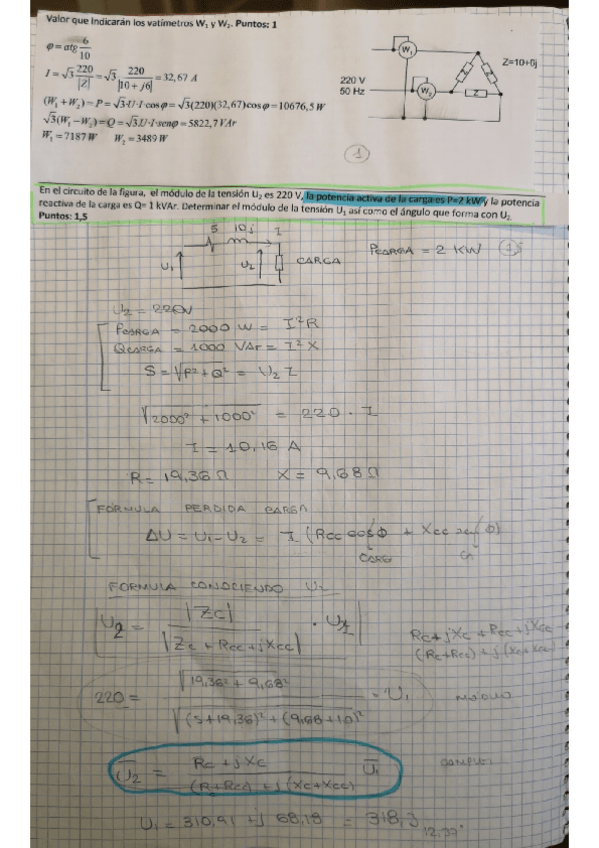 Valor que indicarán los vatímetros W₁ y W₂. Puntos: 1
φ = atg 6/10
I = √3 220/|Z| = √3 220/|10 + j6| = 32,67 A
(W₁ + W₂) = P = √3·U·I·cosφ = √3(220)(32,67)cosφ = 10676,5 W
√3(W₁ − W₂) = Q = √3.U·I·senφ = 5822,7 VAr
W₁ = 7187 W W₂ = 3489 W
W₁
Z=10+6j
220 V
50 Hz
W₂
Z
Z
Z
1
En el circuito de la figura, el módulo de la tensión U₂ es 220 V, la potencia activa de la carga es P=2 kW y la potencia
reactiva de la carga es Q= 1 kVAr. Determinar el módulo de la tensión U₁ así como el ángulo que forma con U₂.
Puntos: 1,5
5 10j I
U₁ U₂ CARGA
PCARGA = 2 KW
U₂ = 220V
PCARGA = 2000 W = I²R
QCARGA = 1000 VAr = I²X
S = √P²+Q² = U₂ I
√2000² + 1000² = 220 · I
I = 10,16 A
R = 19,36 Ω X = 9,68 Ω
FÓRMULA PERDIDA CARGA
ΔU = U₁ − U₂ = I (Rcc cosϕ + Xcc senϕ)
CARG
FORMULA CONOCIENDO U₂
U₂ = |Zc| / |Zc + Rcc + jXcc| · U₁
Rc + jXc + Rcc + jXcc
(Rc+Rcc) + j(Xc+Xcc)
220 = √19,36² + 9,68² / √(5+19,36)² + (9,68+10)² · U₁
MODULO
U₂ = Rc + jXc / (R+Rcc) + j(Xc+Xcc) U₁
U₁ = 310,91 + j 68,18 = 318,3 12,37°